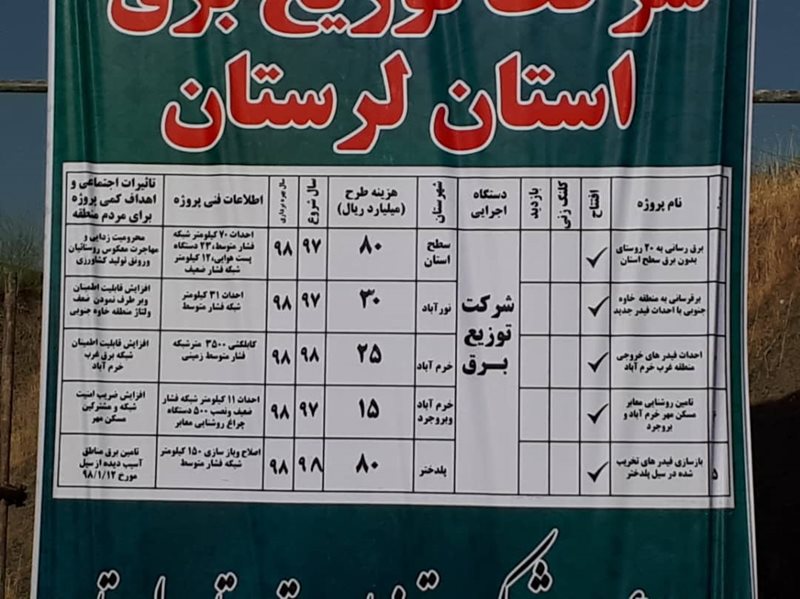 شرکت توزیع برق
استان لرستان
نام پروژه افتتاح کلنگ زنی بازدید دستگاه اجرایی شهرستان هزینه طرح (میلیارد ریال) سال شروع سال بهره برداری اطلاعات فنی پروژه تاثیرات اجتماعی و اهداف کمی پروژه برای مردم منطقه
برق رسانی به ۲۰ روستای بدون برق سطح استان ✓ سطح استان ۸۰ ۹۷ ۹۸ احداث ۷۰ کیلومتر شبکه فشار متوسط،۲۳ دستگاه پست هوایی،۱۲ کیلومتر شبکه فشار ضعیف محرومیت زدایی و مهاجرت معکوس روستائیان ورونق تولید کشاورزی
برقرسانی به منطقه خاوه جنوبی با احداث فیدر جدید ✓ نورآباد ۳۰ ۹۷ ۹۸ احداث ۳۱ کیلومتر شبکه فشار متوسط افزایش قابلیت اطمینان وبر طرف نمودن ضعف ولتاژ منطقه خاوه جنوبی
شرکت توزیع برق
احداث فیدر های خروجی منطقه غرب خرم آباد ✓ خرم آباد ۲۵ ۹۸ ۹۸ کابلکشی ۳۵۰۰ مترشبکه فشار متوسط زمینی افزایش قابلیت اطمینان شبکه برق غرب خرم آباد
تامین روشنایی معابر مسکن مهر خرم آباد و بروجرد ✓ خرم آباد وبروجرد ۱۵ ۹۷ ۹۸ احداث ۱۱ کیلومتر شبکه فشار ضعیف ونصب ۵۰۰ دستگاه چراغ روشنایی معابر افزایش ضریب امنیت شبکه و مشترکین مسکن مهر
۵ بازسازی فیدر های تخریب شده در سیل پلدختر ✓ پلدختر ۸۰ ۹۸ ۹۸ اصلاح وباز سازی ۱۵۰ کیلومتر شبکه فشار متوسط تامین برق مناطق آسیب دیده از سیل مورخ ۹۸/۱/۱۲